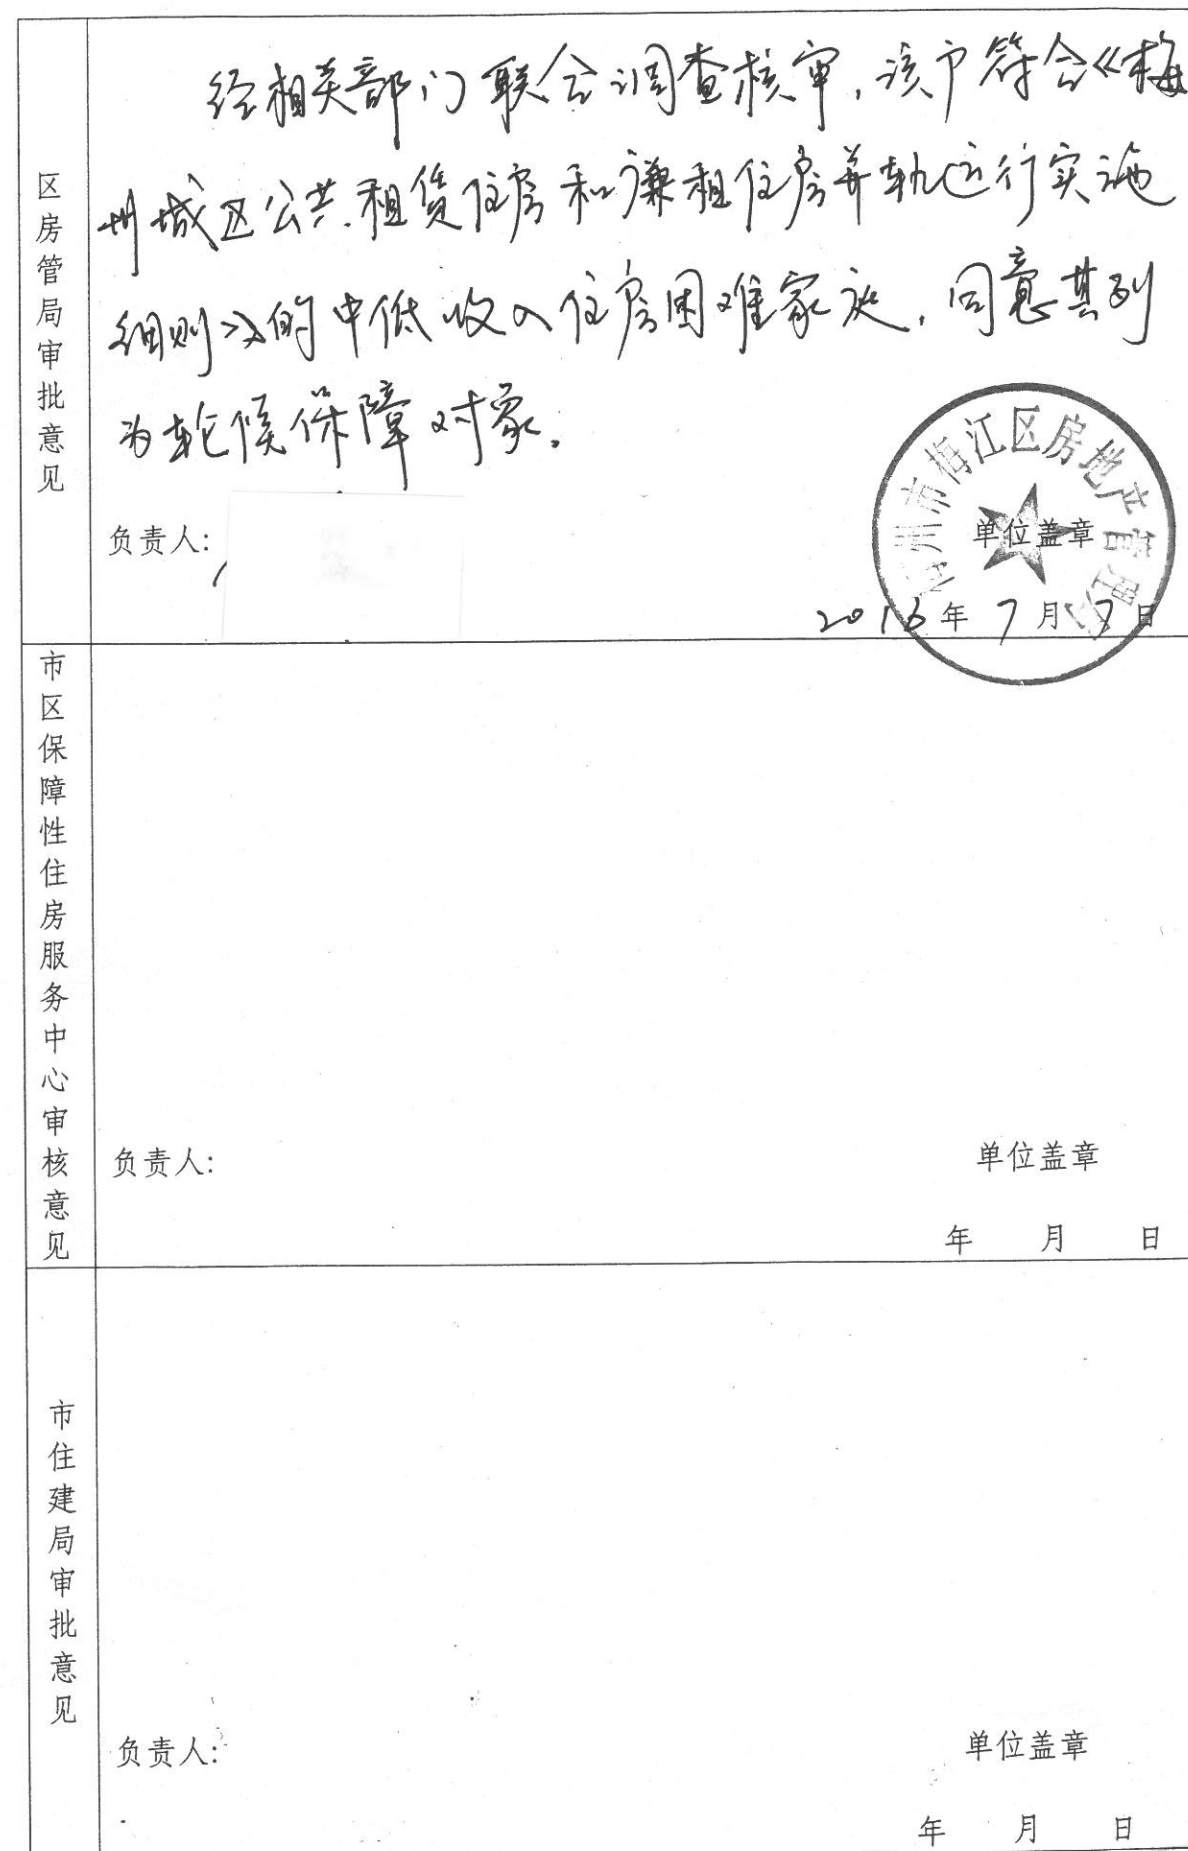 区房管局审批意见
经相关部门联合调查核审，该户符合《梅
州城区公共租赁住房和廉租住房并轨运行实施
细则》的中低收入住房困难家庭，同意其列
为轮候保障对象。
负责人：
单位盖章
梅州市梅江区房地产管理局
2016年 7月 日
市区保障性住房服务中心审核意见
负责人：
单位盖章
年 月 日
市住建局审批意见
负责人：
单位盖章
年 月 日